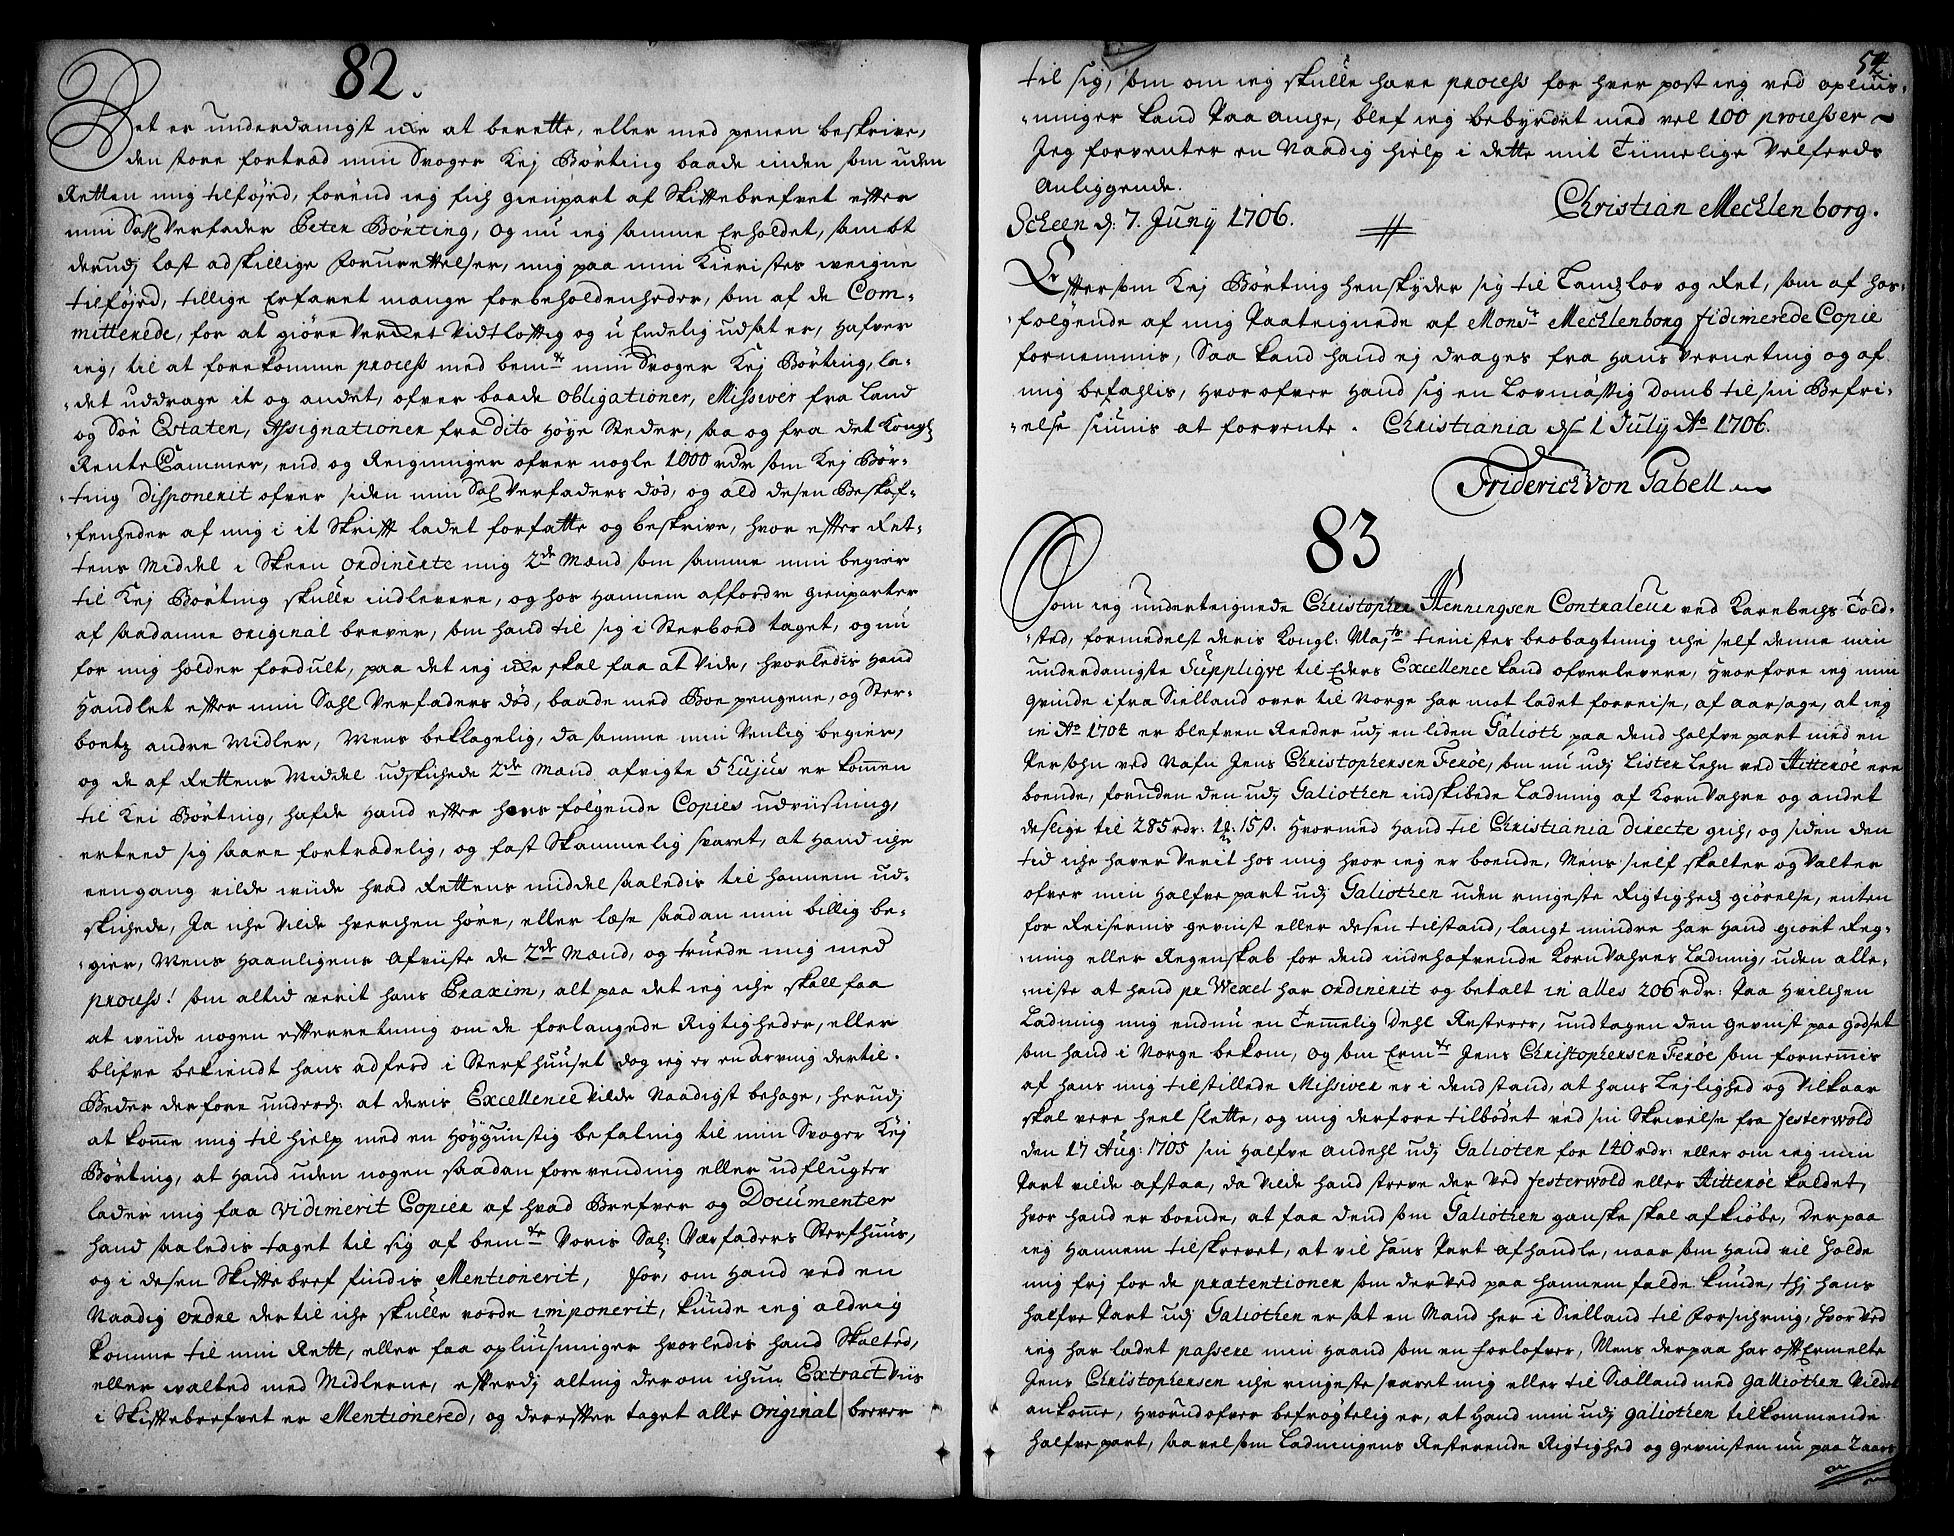 82.
Det er underdanigst icke at berette, eller med penen beskrive,
den store fortræd min Svoger Kej Börting baade inden som uden
Retten mig tilføjed, forend ieg fich gienpart af Skiftebrefvet efter
min Sahl Verfader Peter Börting, og nu ieg samme Erholdet, sambt
derudj læst adskillige forurettelser, mig paa min Kieristes weigne
tilføjed, tillige Erfaret mange forbeholdenheder, som af de Com-
mitterede, for at giöre Verdet Vidtløftig og u Endelig udsat er, Hafver
ieg, til at forekomme process med bemte min Svoger Kej Börting, la-
det uddrage it og andet, ofver baade obligationer, Missiver fra Land
og Söe Estaten, Assignationer fra dito Høye Steder, saa og fra det Kongl
Rente Cammer, end og Reigninger ofver nogle 1000 rdr som Kej Bör-
ting disponerit ofver siden min Sal Verfaders død, og ald desen Beskaf-
fenheder af mig i it Skrift ladet forfatte og beskrive, hvor efter Ret-
tens Middel i Skeen ordinerte mig 2de Mænd som samme min begier
til Kej Börting skulle indlevere, og hos Hannem affordre gienparter
af saadanne original brever, som hand til sig i Sterboed taget, og nu
for mig holder fordult, paa det ieg icke skal faa at Vide, hvorledis Hand
Handlet efter min Sahl Verfaders død, baade med Boe pengene, og Ster-
boets andre Midler, Mens beklagelig, da samme min Venlig begier,
og de af Rettens Middel udskichede 2de Mænd afvigte 5 Hujus er kommen
til Kei Börting, hafde Hand efter hans følgende Copies udvisning,
erteed sig saare fortrædelig, og fast Skammelig svaret, at Hand iche
eengang vilde wide hvad Rettens middel saaledis til hannem ud-
skichede, Ja iche Vilde hverchen høre, eller læse saadan min billig be-
gier, Mens Haanligens Afviiste de 2de Mænd, og truede mig med
process! som altid verit hans Praxim, alt paa det ieg iche skall faa
at wiide nogen efterretning om de forlangede Rigtigheder, eller
blifve bekiendt hans adferd i Sterfhuuset dog ieg er en arving dertil.
Beder derfore underd: at deris Excellence Vilde Naadigst behage, herudj
at komme mig til hielp med en Höygunstig befaling til min Svoger Kej
Börting, at Hand uden nogen saadan forevending eller udflugter
lader mig faa Vidimerit Copier af hvad Brefver og Documenter
hand saaledis taget til sig af bemte Voris Sal: Værfaders Sterfhuus,
og i desen Skiftebref findis Mentionerit, for, om Hand ved en
Naadig ordre dertil iche skulle vorde imponerit, kunde ieg aldrig
komme til min Rett, eller faa oplüusninger hvorledis hand Skalted,
eller walted med Midlerne, efterdj alting derom ichun Extract Viis
i Skiftebrefvet er Mentionered, og derefter taget alle Original brever
54.
til sig, som om ieg skulle have process for hver post ieg ved oplius-
ninger kand Paa anche, blef ieg bebyrdet med vel 100 processer
Jeg forventer en Naadig hielp i dette mit Tiimelige Velferds
Anliggende.
Christian Mechlenborg.
Scheen d: 7. Junij 1706.
Eftersom Kej Börting henskyder sig til Landslov og Ret, som af hos-
følgende af mig Paateignede af Monsr Mechlenborg fidimerede Copie
fornemmis, Saa kand hand ej drages fra Hans Verneting og af
mig befahlis, hvorofver Hand sig en Lovmæssig Domb til sin Befri-
else siunis at forvente. Christiania d 1 July Ao 1706.
Friderich Von Gabell
83
Som ieg underteignede Christopher Henningsen Contraleur ved Karebechs Told-
sted, formedelst deris Kongl: Majts tienistes beobagtning iche self denne min
underdanigste Suppliqve til Eders Excellence kand ofverlevere, Hvorfore ieg min
qvinde ifra Siælland over til Norge har mot ladet forreise, af aarsage, at ieg
in Ao 1704 er blefven Reeder udj en liden Galioth paa dend halfve part med en
Persohn ved Nafn Jens Christophersen Feröe, som nu udj Lister Lehn ved Hitteröe ere
boende, foruden den udj Galiothen indskibede Ladning af Korn Vahre og andet
deslige til 285 rdr: 1 15 s. Hvormed Hand til Christiania directe gich, og siden den
tid iche haver Verit hos mig hvor ieg er boende, Mens sielf skalter og Valter
ofver min Halfve part udj Galiothen uden ringeste Rigtigheds giörelse, enten
for Reisernis gevinst eller desen tilstand, langt mindre har Hand giort Reg-
ning eller Regenskab for dend indehafvende Korn Vahres Ladning, uden alle-
niste at hand pr Wexel har ordinerit og betalt in alles 206 rdr: Paa Hvilchen
Ladning mig endnu en Temmelig Dehl Resterer, undtagen den Gevinst paa Godset
som hand i Norge bekom, og som Ermte Jens Christophersen Feröe som fornemmis
af hans mig tilstillede Missiver er i dend stand, at hans Lejlighed og Vilkaar
skal vere heel slette, og mig derfore tilbödet ved sin Skrivelse fra Jesterwold
den 17 Aug: 1705 sin Halfve Andehl udj Galioten for 140 rdr: eller om ieg min
Part vilde afstaa, da Vilde hand streve der ved Jesterwold eller Hitteröe kaldet,
hvor hand er boende, at faa dend som Galiothen ganske skal afkiöbe, Derpaa
ieg Hannem tilskrevet, at vil hans Part afhandle, naar som Hand vil Holde
mig frj for de prætentioner som derved paa hannem falde kunde, thj hans
halfve Part udj Galiothen er sat en Mand her i Siælland til forsichring, hvor ved
ieg har ladet passere min Haand som en forlofver, Mens derpaa har oftErmelte
Jens Christophersen iche ringeste svaret mig eller til Siælland med Galliothen Vildet
ankomme, Hvorudofver befrögtelig er, at Hand min udj Galiothen tilkommende
Halfve part, saavelsom Ladningens Resterende Rigtighed og Gevinsten nu paa 2 aars